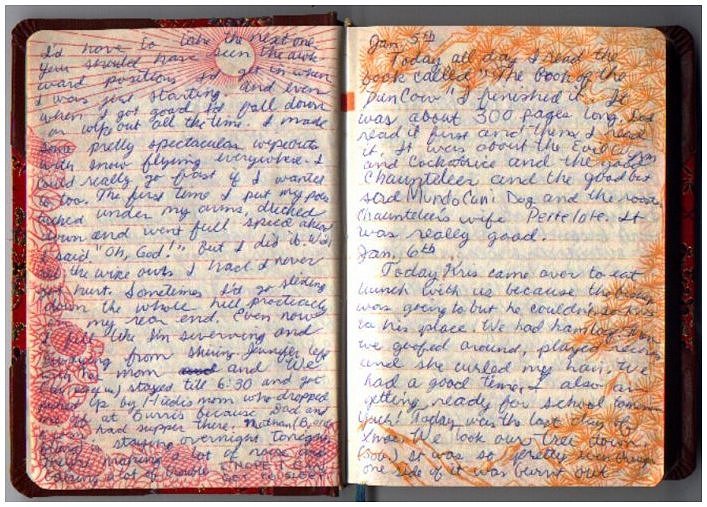 I'd have to take the next one
You should have seen the awk-
ward positions I'd get in when
I was just starting. and even
when I got good I'd fall down
or wipe out all the time. I made
some pretty spectacular wipeouts
with snow flying everywhere. I
could really go fast if I wanted
to too. The first time I put my poles
tucked under my arms, ducked
down and went full speed ahead
I said "Oh, God!" But I did it. With
all the wipe outs I had I never
got hurt. Sometimes I'd go sliding
down the whole hill practically
on my rear end. Even now
I feel like I'm swerving and
from skiing. Jennifer left
with her mom and We
stayed till 6:30 and got
picked up by Heidis mom who dropped
me off at Burris because Dad and
had supper there. Nathan
staying overnight tonight
They're making a lot of noise and
a lot of trouble
I HOPE I CAN
GET TO SLEEP!
Jan, 5th
Today all day I read the
book called "The Book of the
Dun Cow" I finished it. It
was about 300 pages long. Dad
read it first and then I read
it. It was about the Evil
and Cockatrice and the
Chaunteleer and the good but
sad Mundo Cani Dog and the
Chaunteleers wife Pertelote. It
was really good.
Jan, 6th
Today Kris came over to eat
lunch with us because the
was going to but he couldn't so
in his place. We had
we goofed around, played
and she curled my hair. We
had a good time, I also am
getting ready for school tomorrow
Yuch! Today was the last day of
Xmas. We took our tree down.
It was so pretty even though
one side of it was burnt out